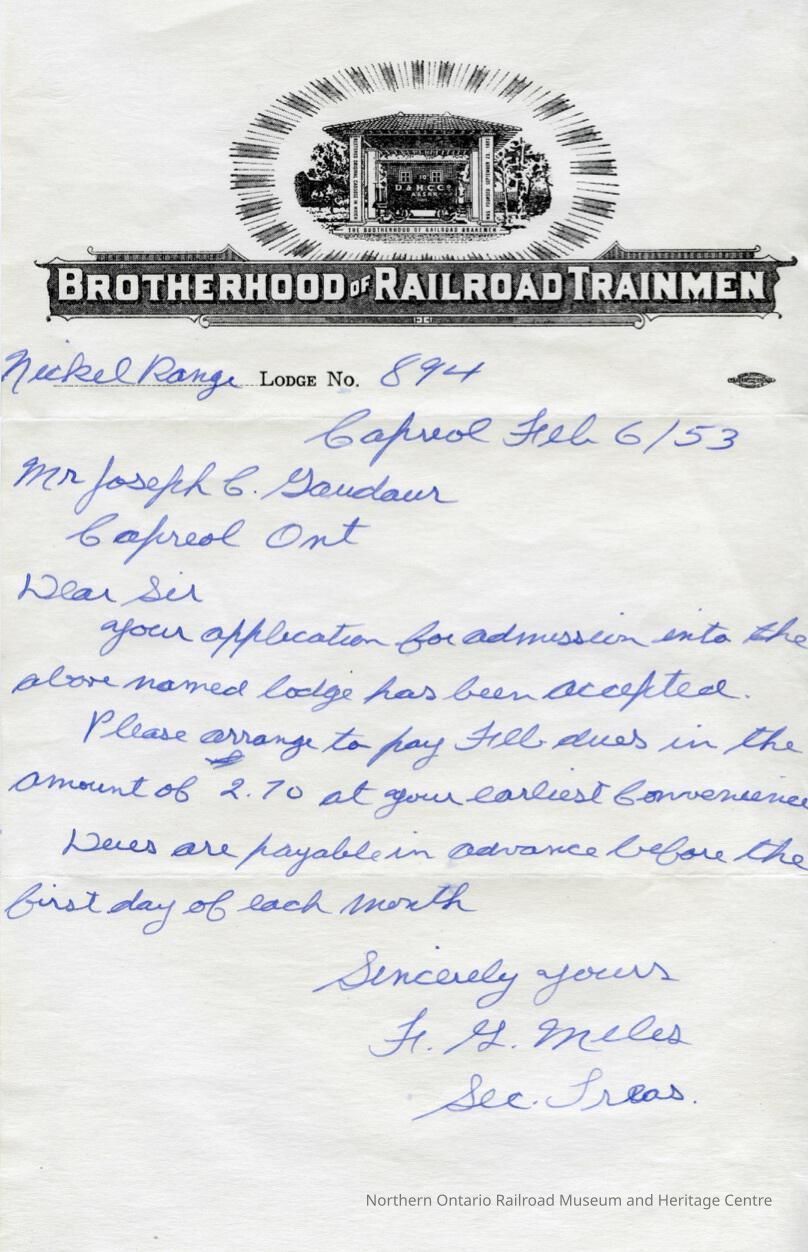 D & H C Co
THE BROTHERHOOD OF RAILROAD BRAKEMEN
BROTHERHOOD OF RAILROAD TRAINMEN
Nickel Range LODGE NO. 894
Capreol Feb 6/53
Mr Joseph C. Gaudaur
Capreol Ont
Dear Sir
your application for admission into the
above named lodge has been accepted.
Please arrange to pay Feb dues in the
amount of 2.70 at your earliest Convenience
Dues are payable in advance before the
first day of each month
Sincerely yours
F. G. Miles
Sec. Treas.
Northern Ontario Railroad Museum and Heritage Centre